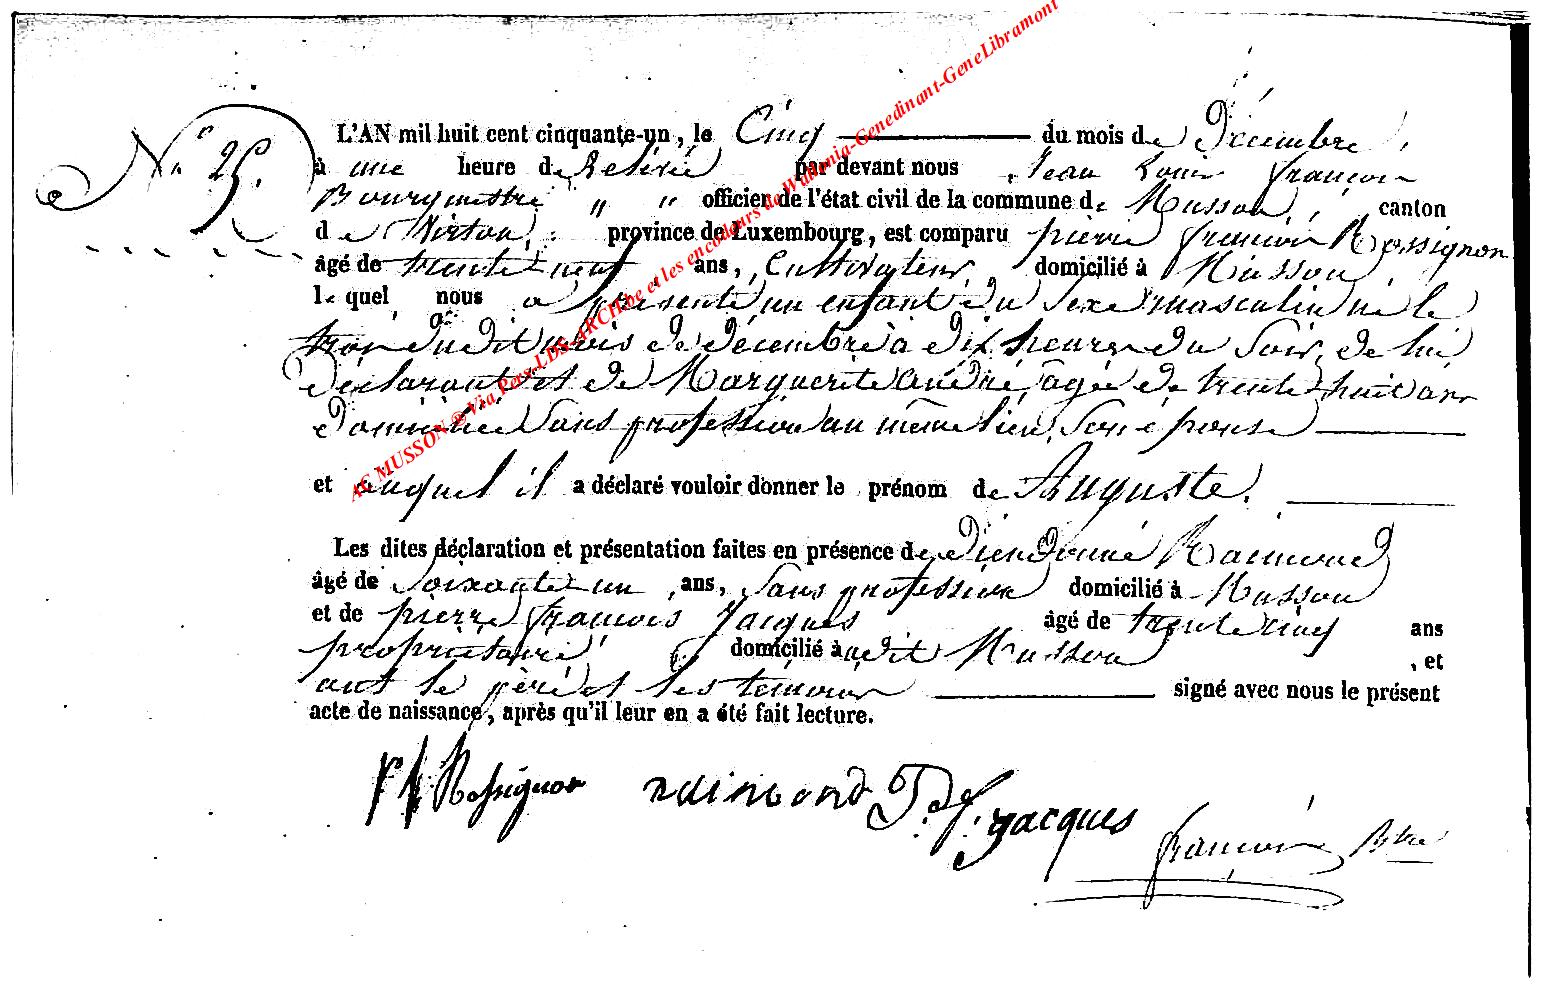 N° 25.
L'AN mil huit cent cinquante-un, le Cinq du mois de Décembre,
à une heure de Relevée par devant nous, Jean Louis françois
Bourgmestre " " officier de l'état civil de la commune de Musson, canton
de Virton, province de Luxembourg, est comparu pierre françois Rossignon
âgé de trente neuf ans, Cultivateur, domicilié à Musson,
le quel nous a présenté un enfant du Sexe masculin né le
trois dudit mois de décembre à dix heures du Soir, de lui
déclarant et de Marguerite andré, agée de trente huit ans
domiciliée Sans profession au même lieu, Son épouse
et auquel il a déclaré vouloir donner le prénom de Auguste.
Les dites déclaration et présentation faites en présence de Dieudonné Raimond
âgé de Soixante un ans, Sans profession domicilié à Musson
et de pierre françois Jacques âgé de trente cinq ans
propriétaire, domicilié à udit Musson, et
ont le père et les témoins signé avec nous le présent
acte de naissance, après qu'il leur en a été fait lecture.
Rossignon raimond P. f. jacques
françois Btre
AC MUSSON © Via Perx-LDS-ARCH.be et les encodeurs de Wallonia-Genedinant-GeneLibramont